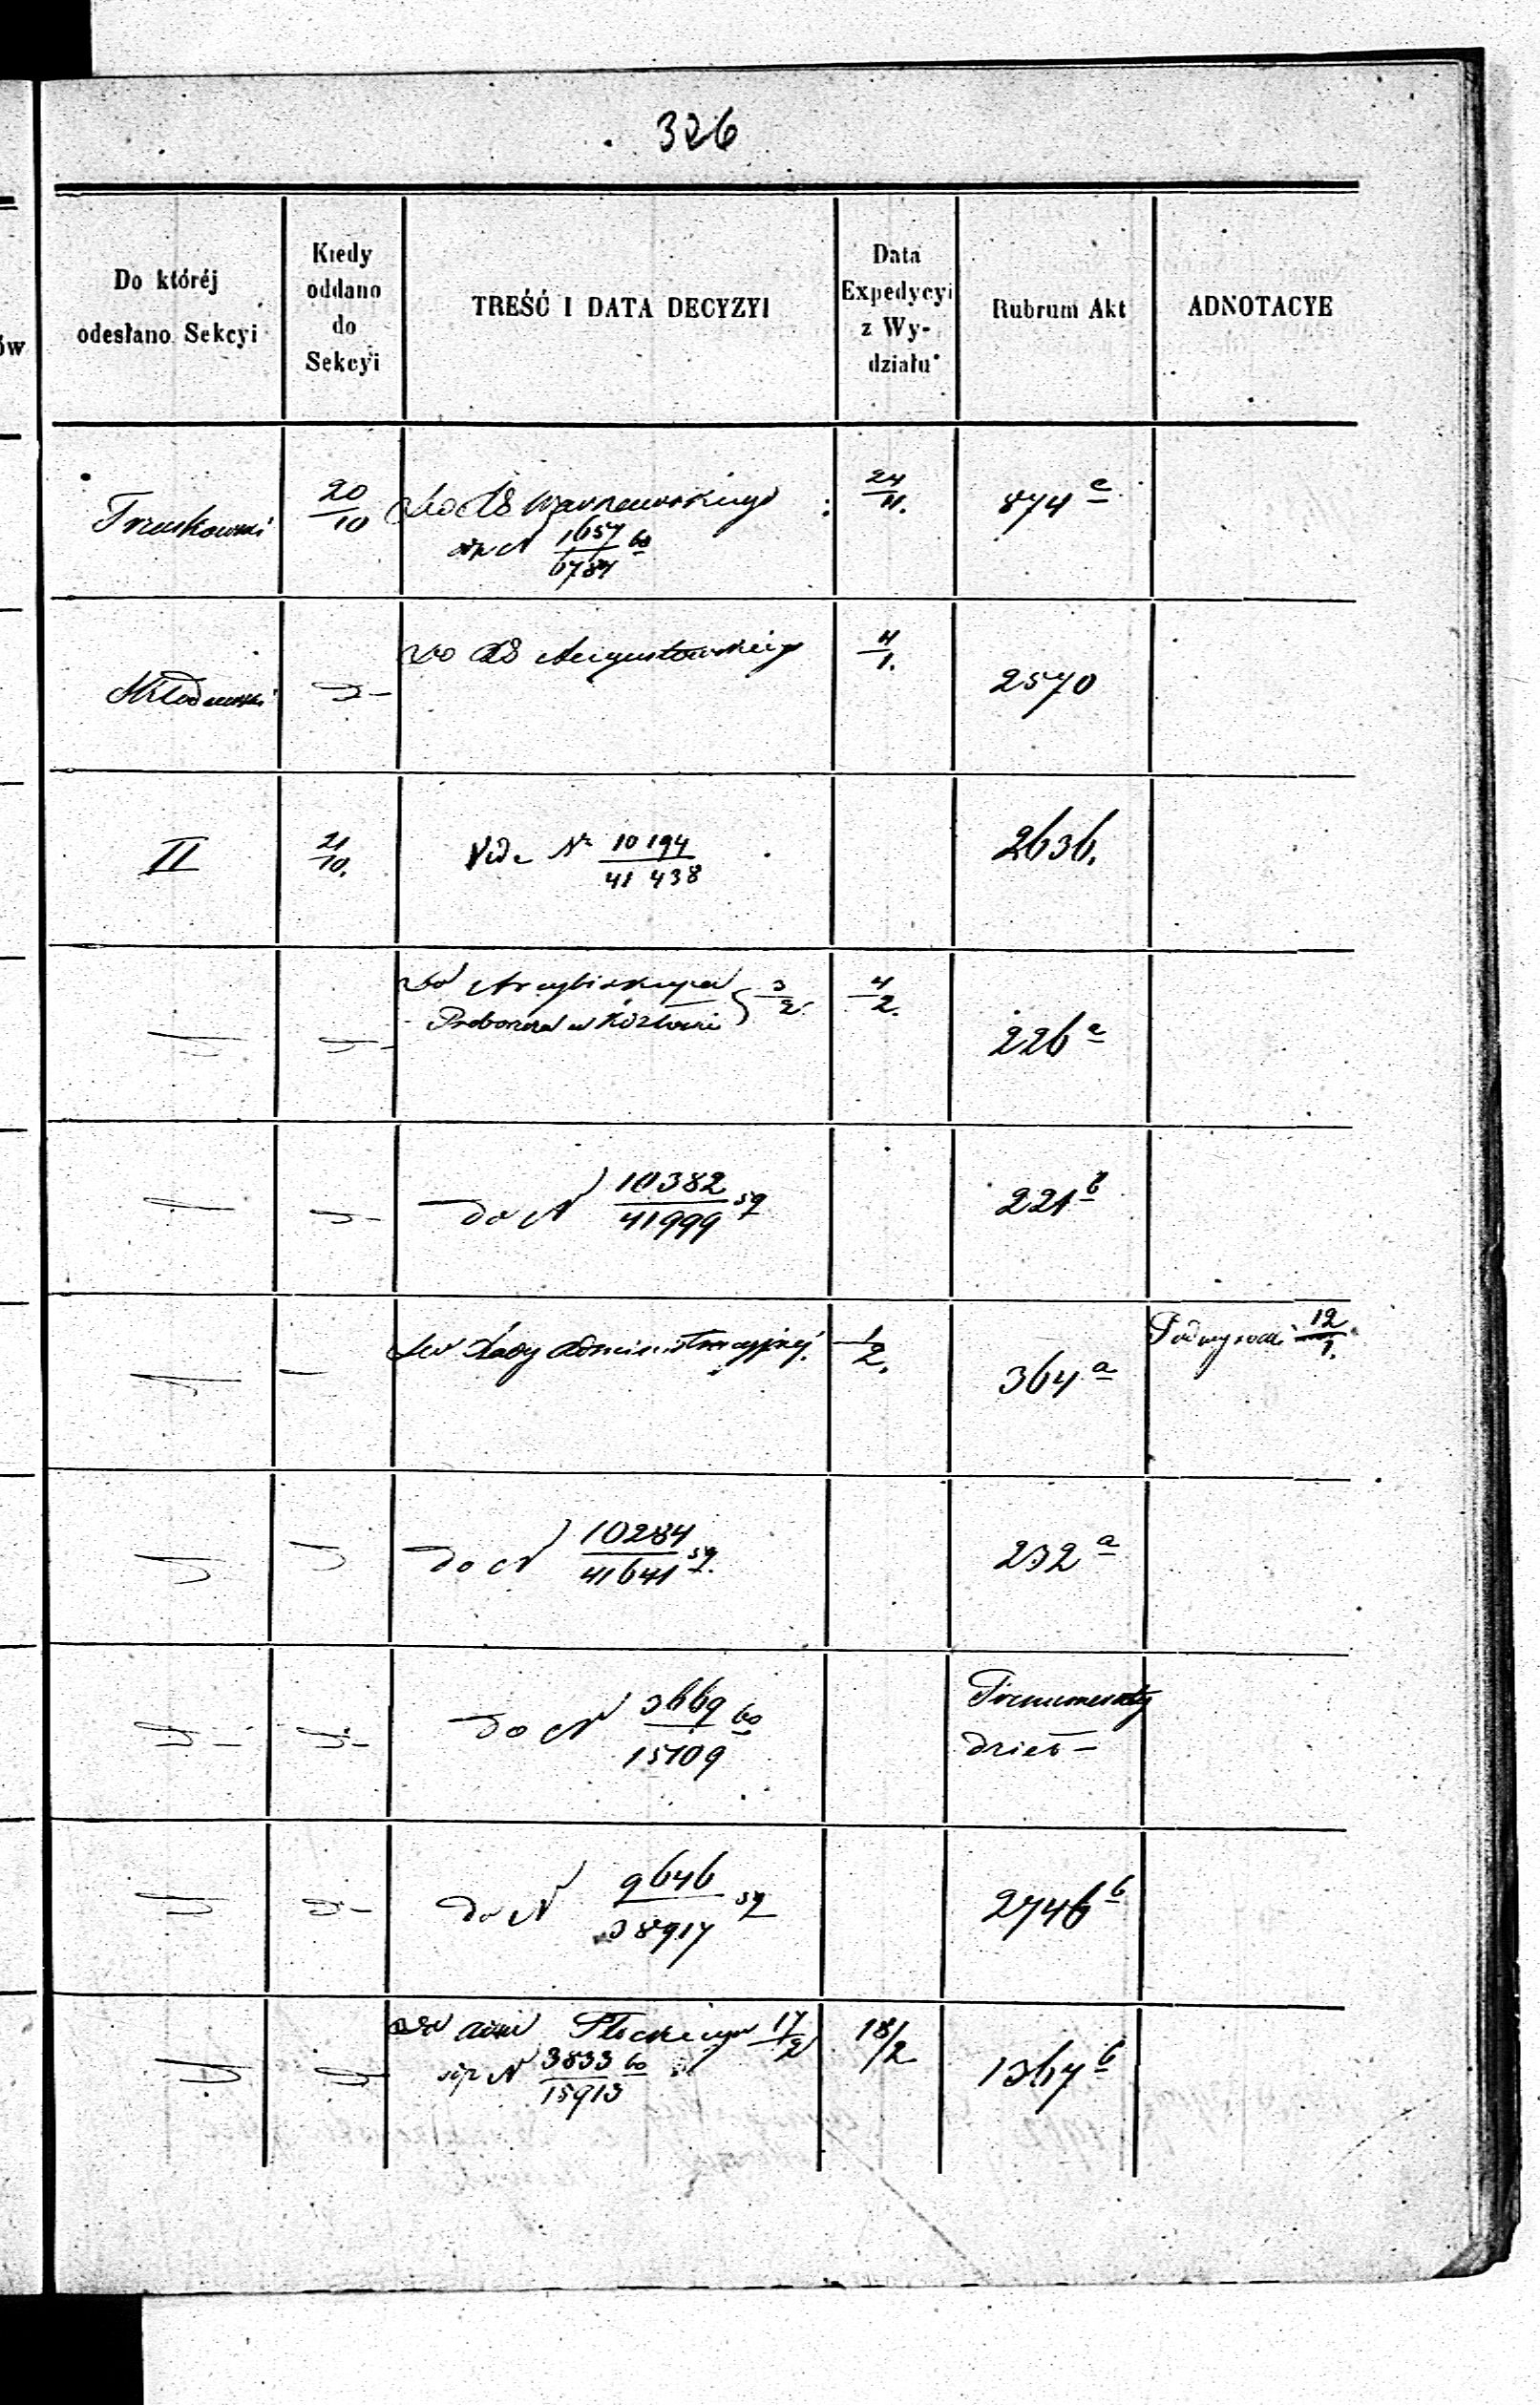 326
Do któréj
odesłano Sekcyi
Kiedy
oddano
do
Sekcyi
TREŚĆ I DATA DECYZYI
Data
Expedycyi
z Wy-
działu
Rubrum Akt
ADNOTACYE
20/10
Do RG Warszawskiego
N 1657/6787
24/11.
874 c
Do RG Augustowskiego
4/1.
2570
II
21/10.
Vide Nr 10194/41438
2636.
Do Arcybiskupa
Proboszcza w
3/2
4/2.
226 a
do N 10382/41999 sq
221 b
Do Rady Administracyjnej.
1/2.
364 a
12/1.
do N 10284/41641 sq.
232 a
do N 3669/15109 60
Prenumeraty
dzieł
do N 9646/38917 sq
2746 b
Płockiego 17/2
N 3833/15913 60
18/2
1367 b